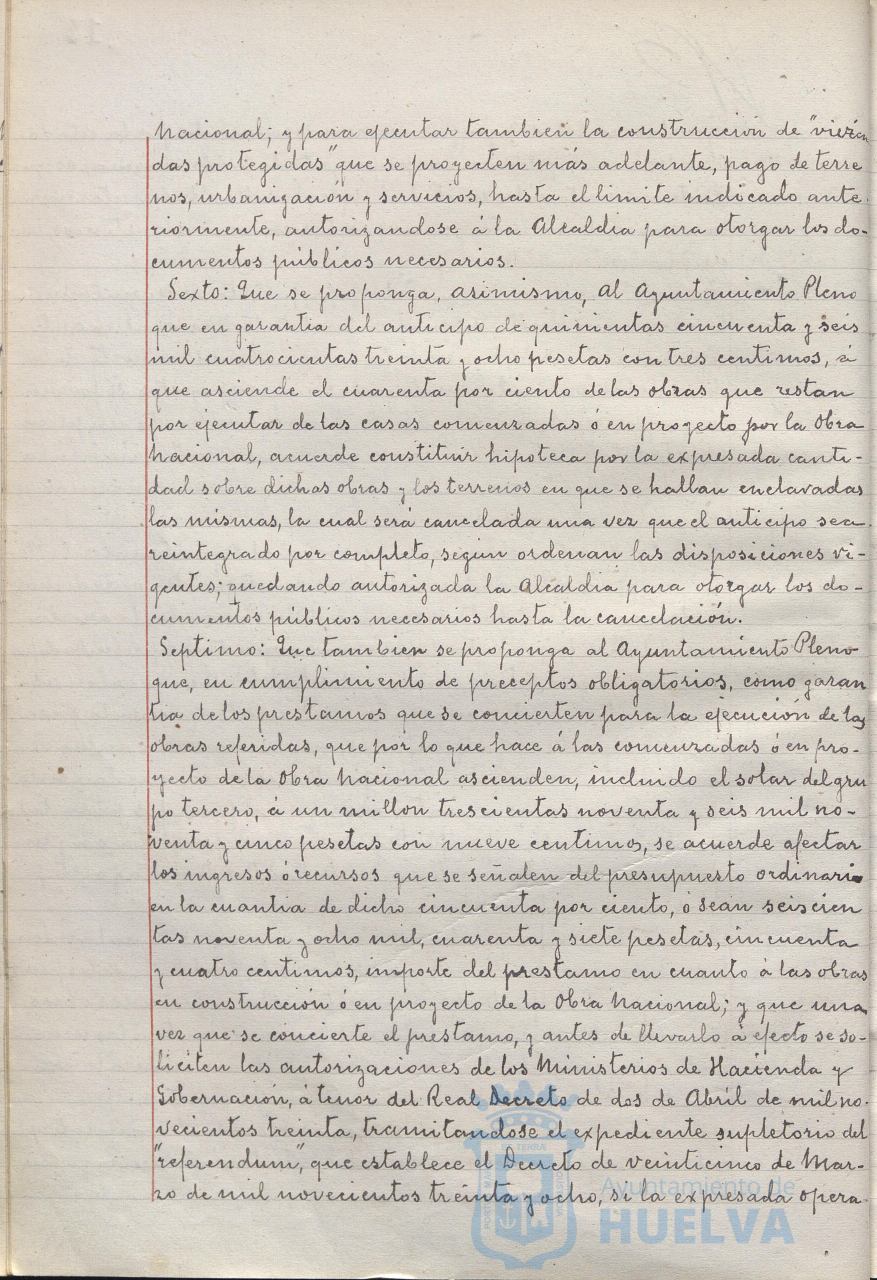 Nacional; y para ejecutar tambien la construcción de "vivien
das protegidas" que se proyecten más adelante, pago de terre
nos, urbanización y servicios, hasta el limite indicado ante-
riormente, autorizandose á la Alcaldia para otorgar los do-
cumentos públicos necesarios.
Sexto: Que se proponga, asimismo, al Ayuntamiento Pleno
que en garantia del anticipo de quinientas cincuenta y seis
mil cuatrocientas treinta y ocho pesetas con tres centimos, á
que asciende el cuarenta por ciento de las obras que restan
por ejecutar de las casas comenzadas ó en proyecto por la Obra
Nacional, acuerde constituir hipoteca por la expresada canti-
dad sobre dichas obras y los terrenos en que se hallan enclavadas
las mismas, la cual será cancelada una vez que el anticipo sea
reintegrado por completo, segun ordenan las disposiciones vi-
gentes; quedando autorizada la Alcaldia para otorgar los do-
cumentos públicos necesarios hasta la cancelación.
Septimo: Que tambien se proponga al Ayuntamiento Pleno
que, en cumplimiento de preceptos obligatorios, como garan
tia de los prestamos que se concierten para la ejecución de las
obras referidas, que por lo que hace á las comenzadas ó en pro-
yecto de la Obra Nacional ascienden, incluido el solar del gru
po tercero, á un millon trescientas noventa y seis mil no-
venta y cinco pesetas con nueve centimos, se acuerde afectar
los ingresos ó recursos que se señalen del presupuesto ordinario
en la cuantia de dicho cincuenta por ciento, ó sean seiscien
tas noventa y ocho mil, cuarenta y siete pesetas, cincuenta
y cuatro centimos, importe del prestamo en cuanto á las obras
en construcción ó en proyecto de la Obra Nacional; y que una
vez que se concierte el prestamo, y antes de llevarlo á efecto se so-
liciten las autorizaciones de los Ministerios de Hacienda y
Gobernación, á tenor del Real Decreto de dos de Abril de mil no-
vecientos treinta, tramitandose el expediente supletorio del
"referendum", que establece el Decreto de veinticinco de Mar-
zo de mil novecientos treinta y ocho, si la expresada opera-
Ayuntamiento de
HUELVA